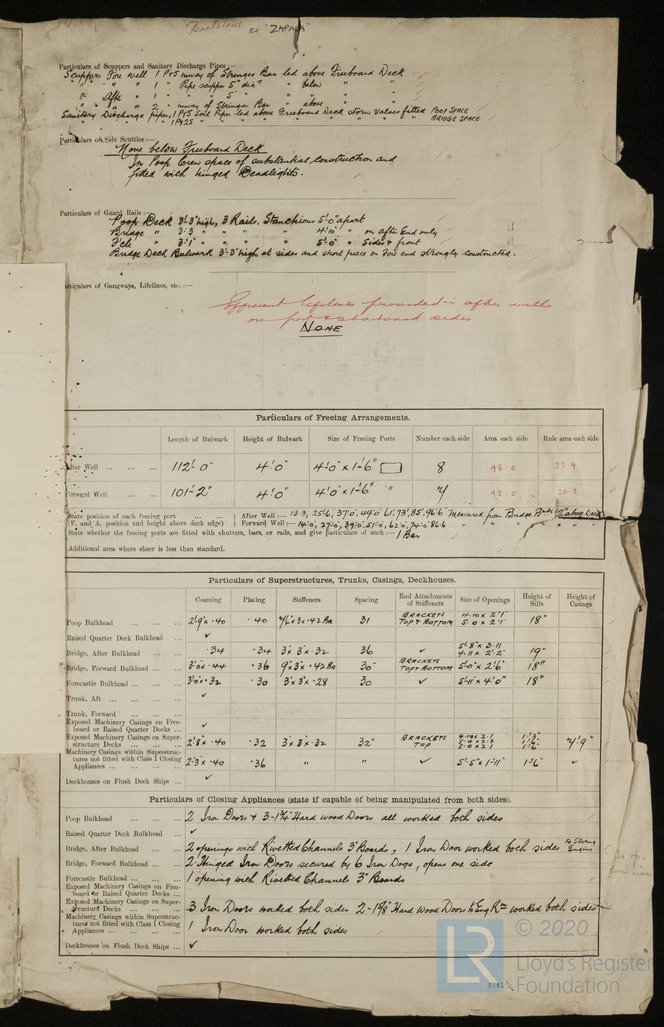 "ZAPALA"
Particulars of Scuppers and Sanitary Discharge Pipes:—
Scuppers Fore well 1 Prs inway of Stringer Bar led above Freeboard Deck
" " " 1 " Pipe scupper 5" dia " below " "
" Aft " 1 " " 5" " " " "
" " " 2 " inway of Stringer Bar " above " "
Sanitary Discharge pipes, 1 Prs Soil Pipes led above Freeboard Deck storm valves fitted POOP SPACE
BRIDGE SPACE
Particulars of Side Scuttles:—
None below Freeboard Deck
In Poop Crew space of substantial construction and
fitted with hinged Deadlights.
Particulars of Guard Rails:—
Poop Deck 3'-3" high, 3 Rails, Stanchions 5'-0" apart
Bridge " 3'-3 " " " " 4'-10" " on after End only
F'cle " 3'-1" " " " " 5'-0" " Sides & front
Bridge Deck Bulwark 3'-3" high at sides and short piece on Fore end strongly constructed.
Particulars of Gangways, Lifelines, etc.:—
Efficient lifelines provided in after wells
on port & starboard sides
NONE
Particulars of Freeing Arrangements.
Length of Bulwark Height of Bulwark Size of Freeing Ports Number each side Area each side Rule area each side
After Well ... ... ... 112'-0" 4'-0" 4'-0" x 1'-6" 8 48.0 22.4
Forward Well ... ... 101'-2" 4'-0" 4'-0" x 1'-6" " 7 42.0 20.2
State position of each freeing port ... ... After Well:— 13.3, 25.6, 37.0, 49.0, 61', 73', 85', 96.6 Measured from Bridge
(F. and A. position and height above deck edge) Forward Well:— 14.0, 27.0, 39.0, 51.0, 62.0, 74.0, 86.6
State whether the freeing ports are fitted with shutters, bars, or rails, and give particulars of such:— 1 Bar
Additional area where sheer is less than standard.
Particulars of Superstructures, Trunks, Casings, Deckhouses.
Coaming Plating Stiffeners Spacing End Attachments of Stiffeners Size of Openings Height of Sills Height of Casings
Poop Bulkhead ... ... ... 2'-9" x .40 .40 31 BRACKETS TOP & BOTTOM 4-10 x 2'-1" 5-0 x 2'-1" 18"
Raised Quarter Deck Bulkhead ... ✓
Bridge, After Bulkhead ... ... .34 .34 3 x 3 x .32 36 ✓ 5'-8" x 3-11 4-11 x 2'-2" 19"
Bridge, Forward Bulkhead ... ... 3'0" x .44 .36 9" x 3" x .42 Ba 30" BRACKETS TOP & BOTTOM 5'-0" x 2'-6" 18"
Forecastle Bulkhead ... ... ... 3'0" x .32 .30 3" x 3" x .28 30 ✓ 5'-11" x 4'-0" 18"
Trunk, Aft ... ... ... ✓
Trunk, Forward ... ... ...
Exposed Machinery Casings on Free-
board or Raised Quarter Decks ... ✓
Exposed Machinery Casings on Super-
structure Decks ... ... ... 2'-8" x .40 .32 3" x 3" x .32 32" BRACKETS TOP 4-10 x 2.1 5.0 x 2.3 5.0 x 2.1 7'-9"
Machinery Casings within Superstruc-
tures not fitted with Class I Closing
Appliances ... ... ... 2'-3" x .40 .36 " " ✓ 5'-5" x 1'-11" 1'-6" ✓
Deckhouses on Flush Deck Ships ... ✓
Particulars of Closing Appliances (state if capable of being manipulated from both sides).
Poop Bulkhead ... ... ... 2 Iron Doors & 3-1¾" Hard wood Doors all worked both sides
Raised Quarter Deck Bulkhead ... ✓
Bridge, After Bulkhead ... ... 2 openings with Rivetted Channels 3" Boards, 1 Iron Door worked both sides to Steering Engine
Bridge, Forward Bulkhead ... ... 2 Hinged Iron Doors secured by 6 Iron Dogs, opens one side
Forecastle Bulkhead ... ... ... 1 opening with Rivetted Channels 3" Boards
Exposed Machinery Casings on Free-
board or Raised Quarter Decks ...
Exposed Machinery Casings on Super-
structure Decks ... ... ... 3 Iron Doors worked both sides 2-1⅝" Hard Wood Doors to Eng Rm worked both sides
Machinery Casings within Superstruc-
tures not fitted with Class I Closing
Appliances ... ... ... 1 Iron Door worked both sides
Deckhouses on Flush Deck Ships ... ✓
© 2020
LR
Lloyd's Register
Foundation